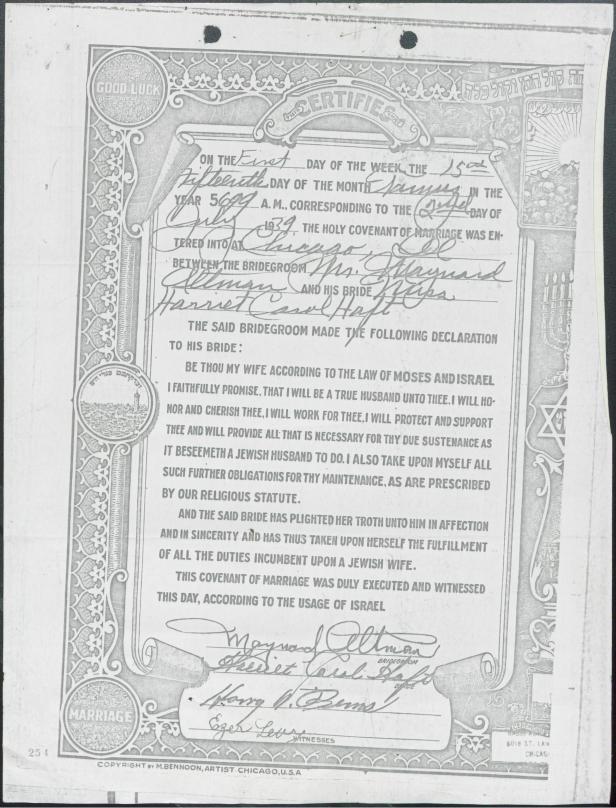 GOOD LUCK
CERTIFIES
ON THE First DAY OF THE WEEK, THE 15nd
Fifteenth DAY OF THE MONTH Tamuz IN THE
YEAR 5699 A. M., CORRESPONDING TO THE 2nd DAY OF
July 1939, THE HOLY COVENANT OF MARRIAGE WAS EN-
TERED INTO AT Chicago, Ill
BETWEEN THE BRIDEGROOM Mr. Maynard
Altman AND HIS BRIDE Miss
Harriet Carol Haft
THE SAID BRIDEGROOM MADE THE FOLLOWING DECLARATION
TO HIS BRIDE:
BE THOU MY WIFE ACCORDING TO THE LAW OF MOSES AND ISRAEL
I FAITHFULLY PROMISE, THAT I WILL BE A TRUE HUSBAND UNTO THEE, I WILL HO-
NOR AND CHERISH THEE, I WILL WORK FOR THEE, I WILL PROTECT AND SUPPORT
THEE AND WILL PROVIDE ALL THAT IS NECESSARY FOR THY DUE SUSTENANCE AS
IT BESEEMETH A JEWISH HUSBAND TO DO. I ALSO TAKE UPON MYSELF ALL
SUCH FURTHER OBLIGATIONS FOR THY MAINTENANCE, AS ARE PRESCRIBED
BY OUR RELIGIOUS STATUTE.
AND THE SAID BRIDE HAS PLIGHTED HER TROTH UNTO HIM IN AFFECTION
AND IN SINCERITY AND HAS THUS TAKEN UPON HERSELF THE FULFILLMENT
OF ALL THE DUTIES INCUMBENT UPON A JEWISH WIFE.
THIS COVENANT OF MARRIAGE WAS DULY EXECUTED AND WITNESSED
THIS DAY, ACCORDING TO THE USAGE OF ISRAEL
Maynard Altman
BRIDEGROOM
Harriet Carol Haft
BRIDE
Harry
Ezer Levy
WITNESSES
MARRIAGE
254
COPYRIGHT BY M. BENNOON, ARTIST. CHICAGO, U.S.A